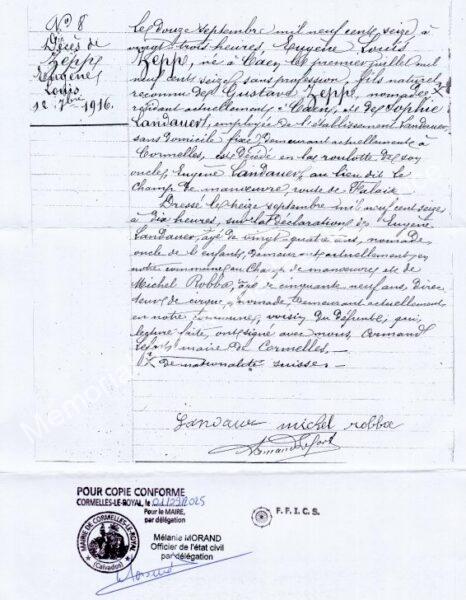 N° 8
Décès de
Zepp
Eugène
Louis
12 7bre 1916.
Le douze septembre mil neuf cent seize à
vingt-trois heures, Eugène Louis
Zepp, né à Caen le premier juillet mil
neuf cent seize, sans profession, fils naturel
reconnu de Gustave Zepp, nomade,
résidant actuellement à Caen, et de Sophie
Landauer, employée de l'établissement Landauer,
sans domicile fixe, demeurant actuellement à
Cormelles, est décédé en la roulotte de son
oncle, Eugène Landauer, au lieu dit le
Champ de manœuvre, route de Falaise
Dressé le seize septembre mil neuf cent seize,
à dix heures, sur la déclaration de Eugène
Landauer, âgé de vingt quatre ans, nomade,
oncle de l'enfant, demeurant actuellement en
notre commune au Champ de manœuvres, et de
Michel Robba, âgé de cinquante neuf ans, direc
teur de cirque, nomade, demeurant actuellement
en notre commune, voisin du défunt, qui,
lecture faite, ont signé avec nous, Armand
Lefort, maire de Cormelles.
de nationalité suisse
Landauer michel robba
Armand Lefort
Memoria
POUR COPIE CONFORME
CORMELLES-LE-ROYAL, le
Pour le MAIRE,
par délégation
Mélanie MORAND
Officier de l'état civil
par délégation
MAIRIE DE CORMELLES-LE-ROYAL
(Calvados)
F.F.I.C.S.